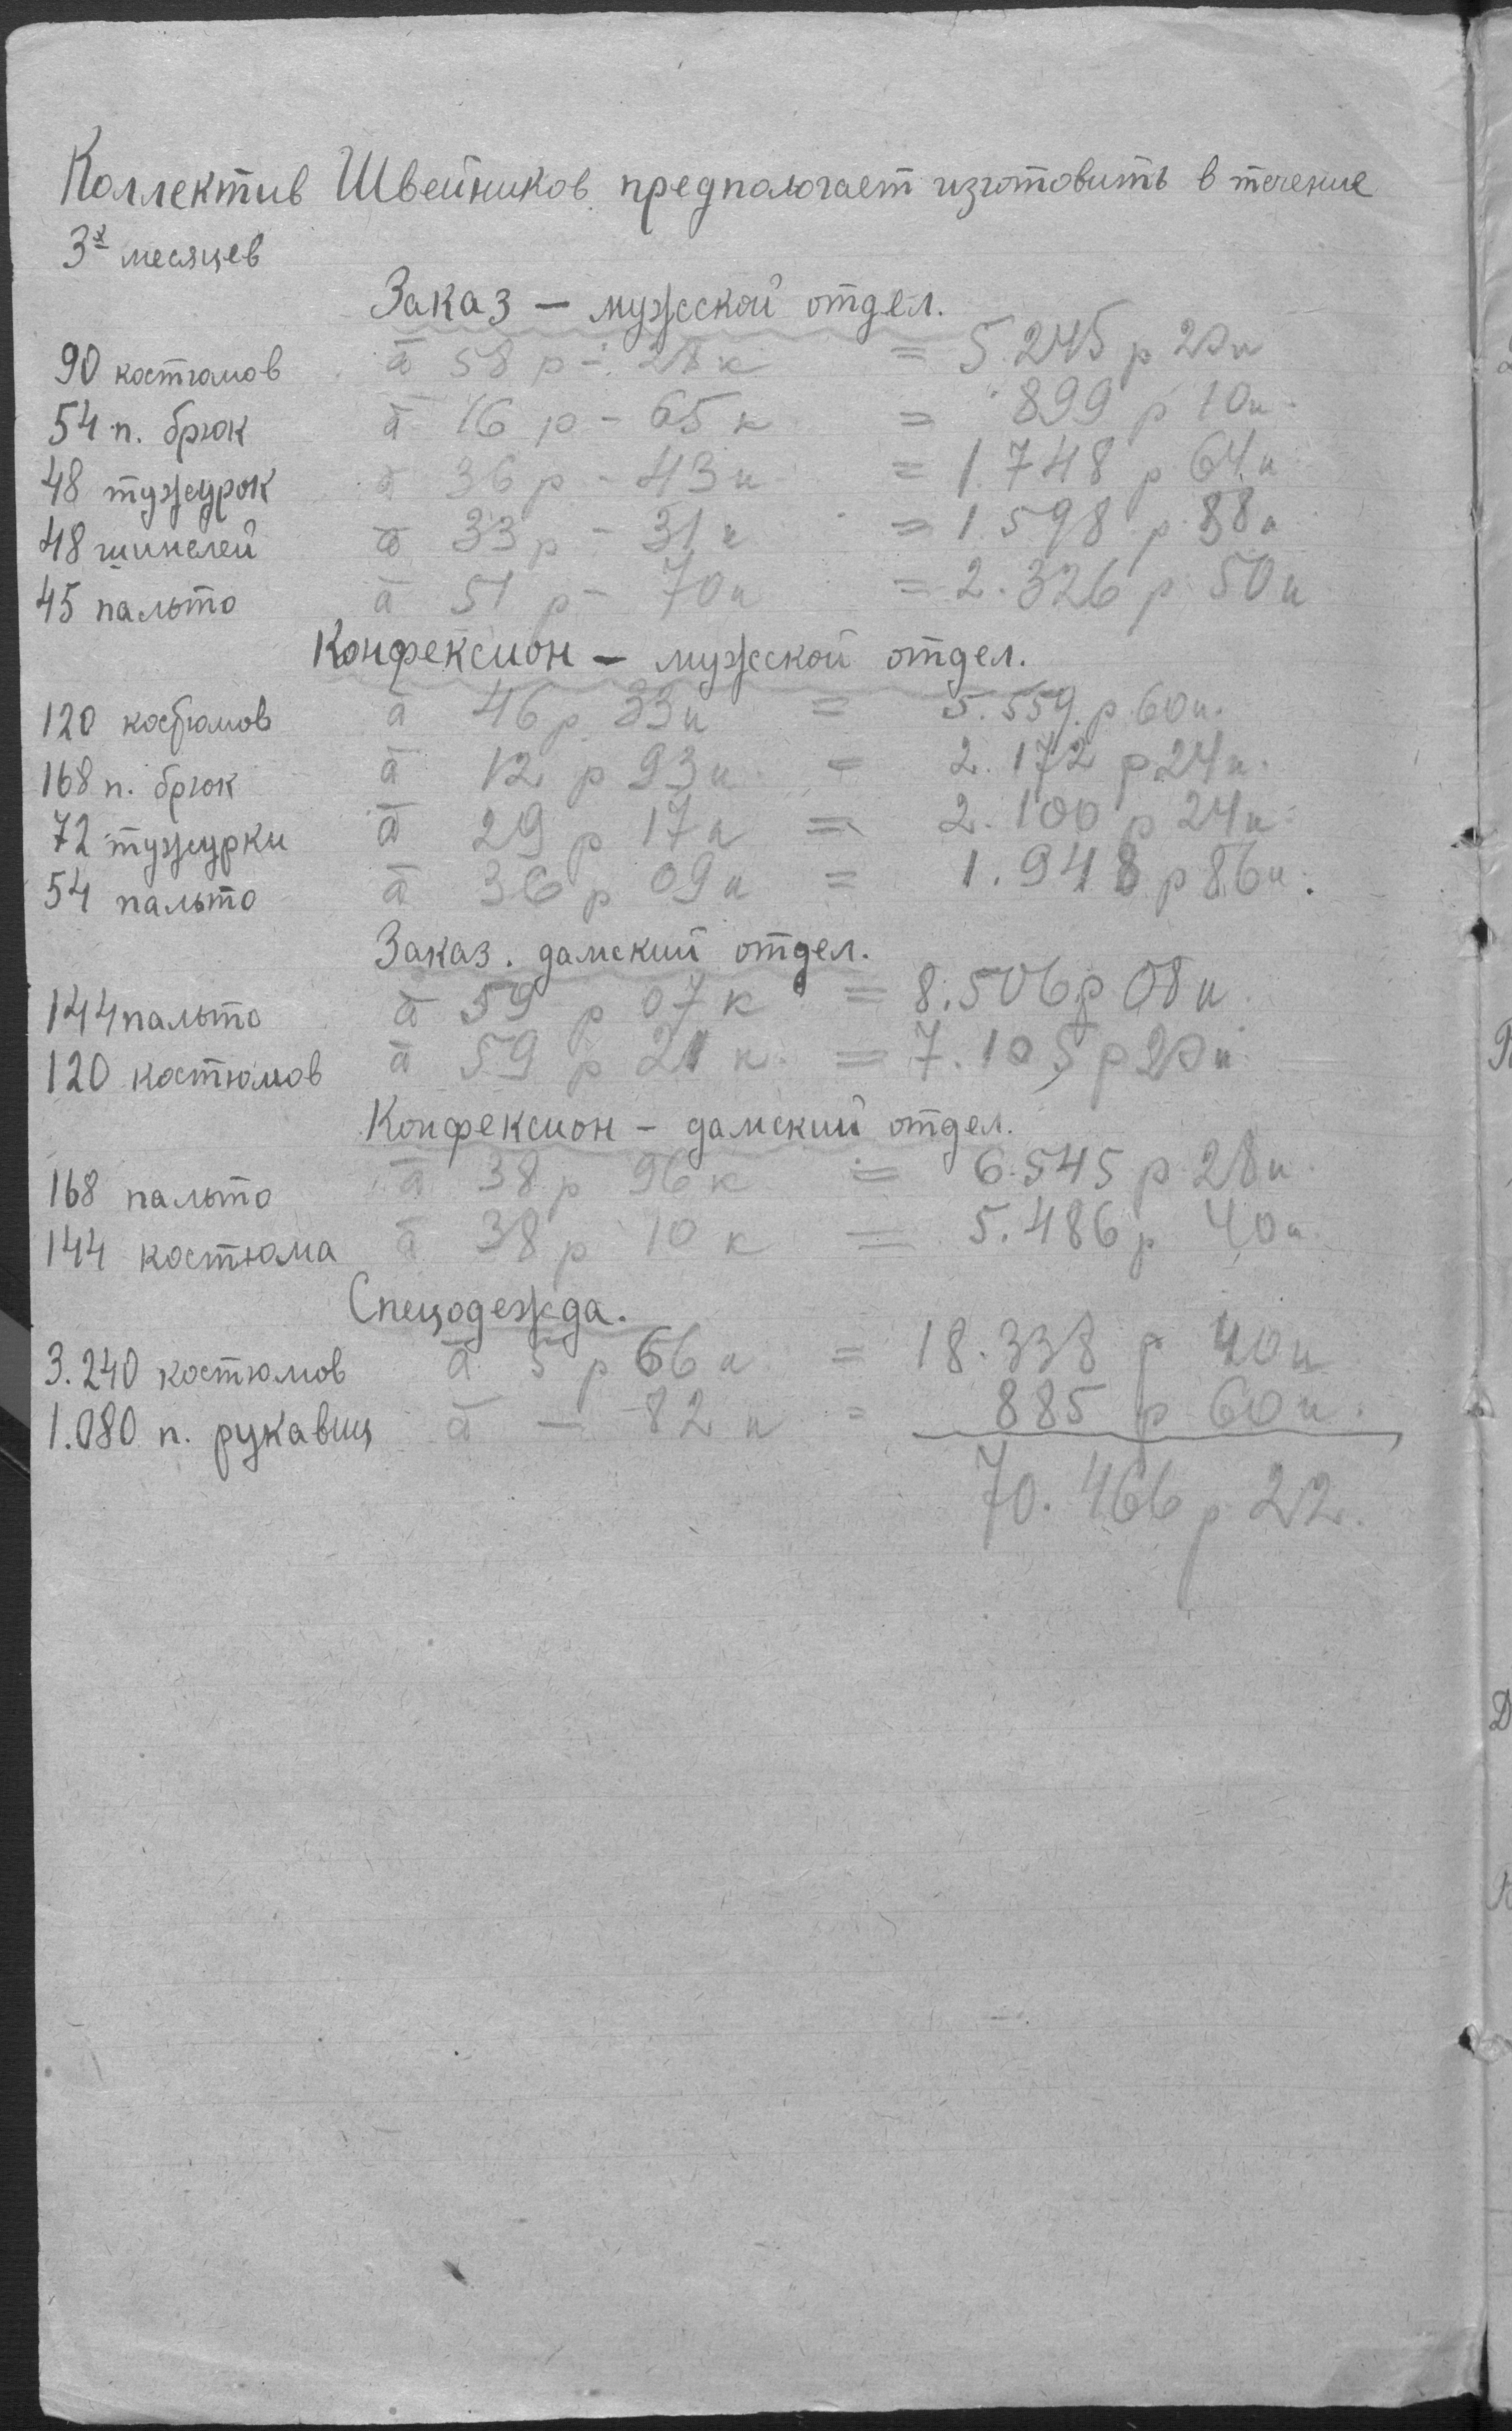 Коллектив Швейников предполагает изготовить в течение
3х месяцев
Заказ — мужской отдел.
90 костюмов à 58 р - 28 к = 5.245 р 20 к
54 п. брюк à 16 р - 65 к = 899 р 10 к
48 тужурок à 36 р - 43 к = 1.748 р 64 к
48 шинелей à 33 р - 31 к = 1.598 р 88 к
45 пальто à 51 р - 70 к = 2.326 р 50 к
Конфексион — мужской отдел.
120 костюмов à 46 р 33 к = 5.559 р 60 к.
168 п. брюк à 12 р 93 к = 2.172 р 24 к.
72 тужурки à 29 р 17 к = 2.100 р 24 к.
54 пальто à 36 р 09 к = 1.948 р 86 к.
Заказ. дамский отдел.
144 пальто à 59 р 07 к = 8.506 р 08 к.
120 костюмов à 59 р 21 к. = 7.105 р 20 к
Конфексион — дамский отдел.
168 пальто à 38 р 96 к = 6.545 р 28 к.
144 костюма à 38 р 10 к = 5.486 р 40 к.
Спецодежда.
3.240 костюмов à 5 р 66 к = 18.338 р 40 к
1.080 п. рукавиц à — 82 к = 885 р 60 к.
70.466 р 22.